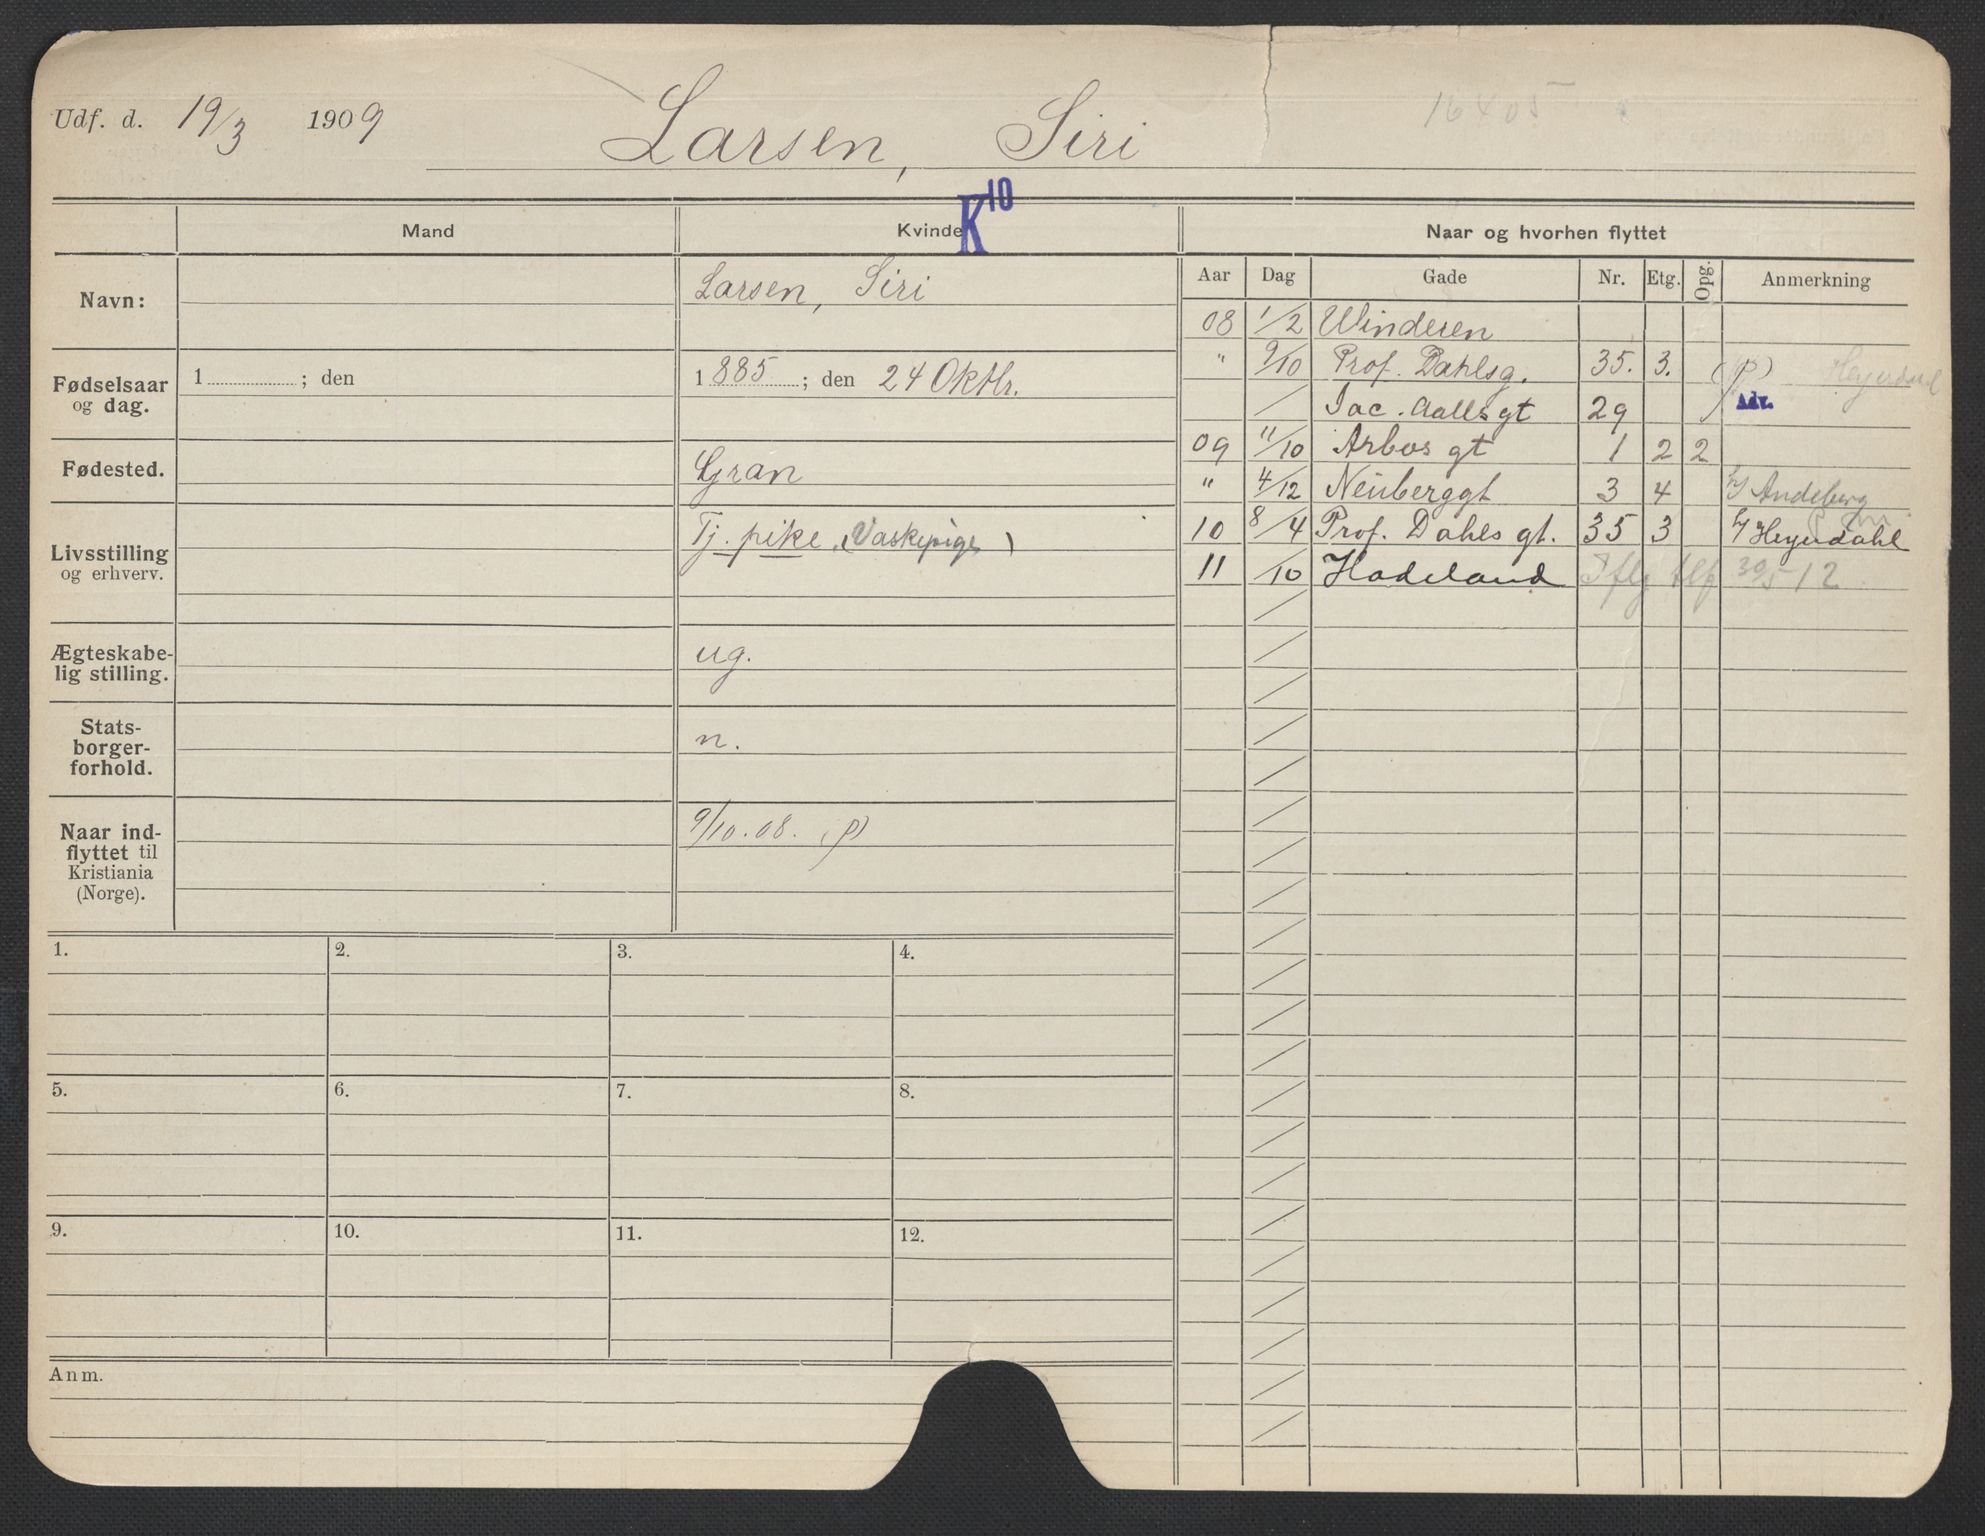 Udf. d. 19/3 1909 Larsen, Siri 16405
K10
Mand Kvinde Naar og hvorhen flyttet
Aar Dag Gade Nr. Etg. Opg. Anmerkning
Navn: Larsen, Siri
Fødselsaar og dag. 1 ; den 1885 ; den 24 Oktbr.
Fødested. Gran
Livsstilling og erhverv. Tj. pike (Vaskepige)
Ægteskabe-
lig stilling. ug.
Stats-
borger-
forhold. n.
Naar ind-
flyttet til
Kristiania
(Norge). 9/10.08. (P)
08 1/2 Vinderen
" 9/10 Prof. Dahlsg. 35. 3. (P) Heyerdahl
/ Jac. Aalls gt 29 Adr.
09 11/10 Arbos gt 1 2 2
" 4/12 Neuberggt 3 4 h/ Andeberg
10 8/4 Prof. Dahls gt. 35 3 h/ Heyerdahl
11 /10 Hadeland Iflg tlf 30/5 12
1. 2. 3. 4.
5. 6. 7. 8.
9. 10. 11. 12.
Anm.